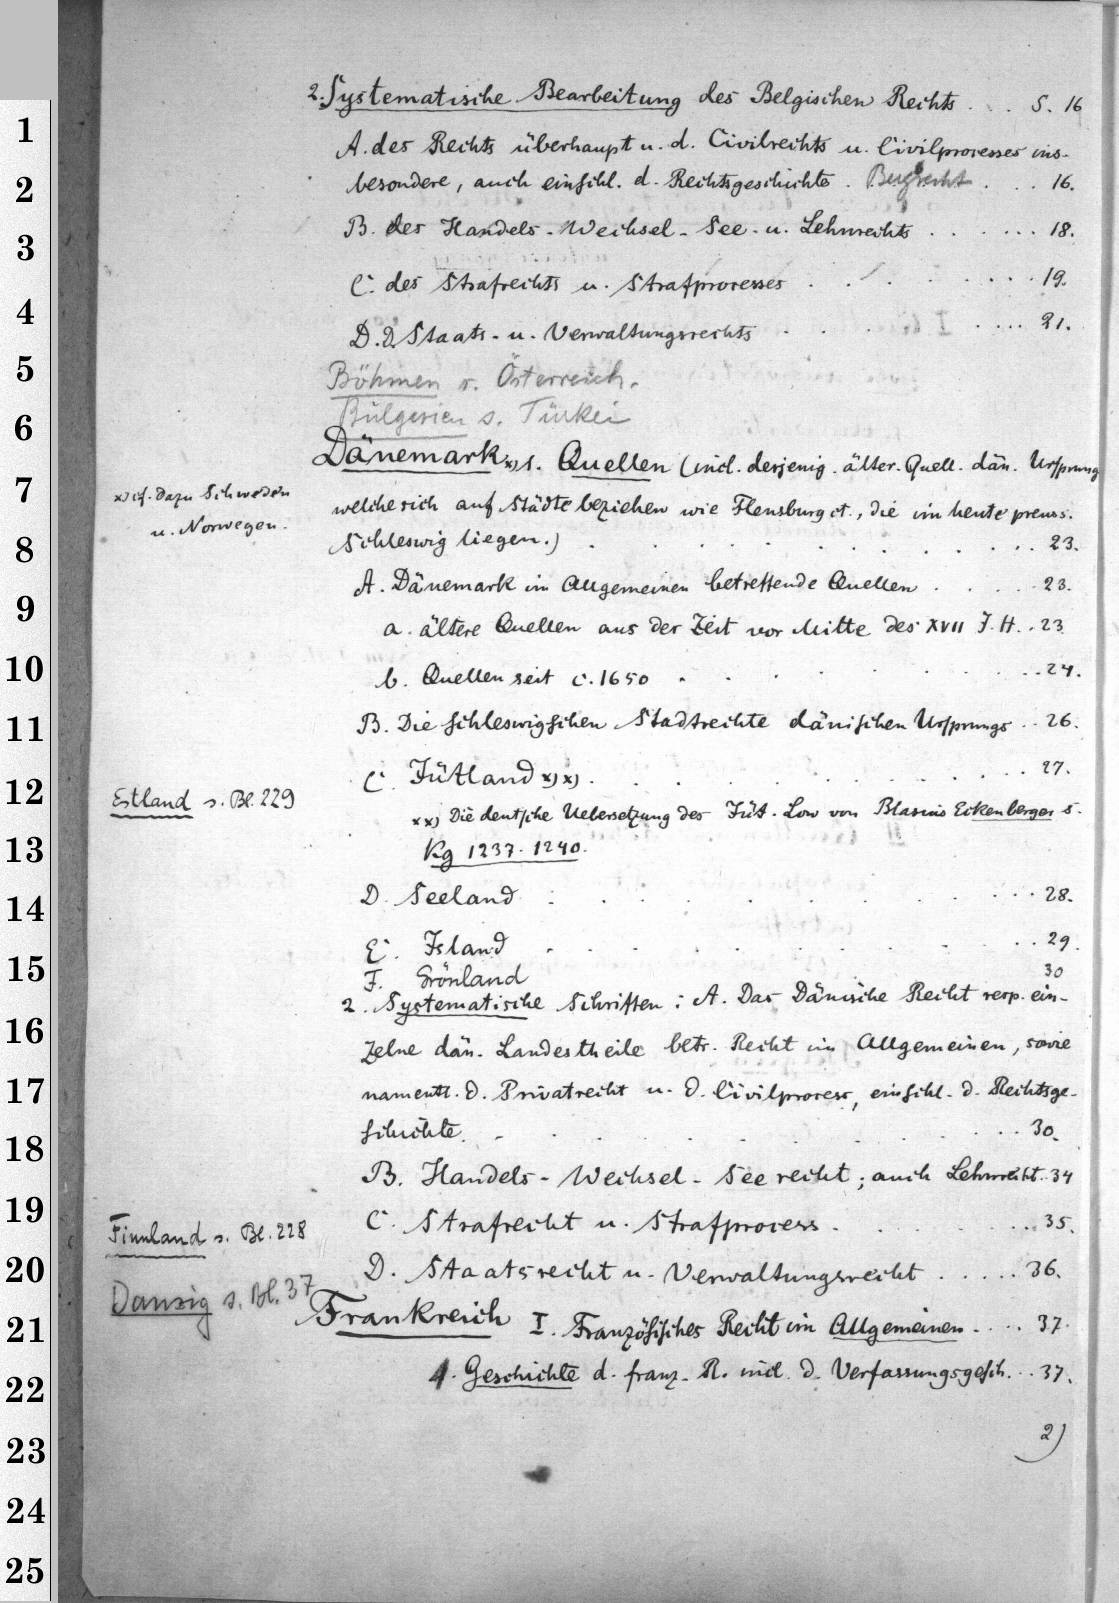 2. Systematische Bearbeitung des Belgischen Rechts . . . S. 16
A. des Rechts überhaupt u. d. Civilrechts u. Civilprocesses ins-
besondere, auch einschl. d. Rechtsgeschichte . Bergrecht . . . 16.
B. des Handels-Wechsel-See-u. Lehnrechts . . . . . . 18.
C. des Strafrechts u. Strafprocesses . . . . . . . . 19.
D. d. Staats- u. Verwaltungsrechts . . . . . . . 21.
Böhmen s. Österreich.
Bulgarien s. Türkei
Dänemark x) 1. Quellen (incl. derjenig. älter. Quell. dän. Ursprung
x) cf. dazu Schweden
u. Norwegen.
welche sich auf Städte beziehen wie Flensburg ct., die im heute preuss.
Schleswig liegen.) . . . . . . . . . . . 23.
A. Dänemark im Allgemeinen betreffende Quellen . . . . . 23.
a. ältere Quellen aus der Zeit vor Mitte des XVII J. H. . 23
b. Quellen seit c. 1650 . . . . . . . . . 24.
B. Die schleswigschen Stadtrechte dänischen Ursprungs . . 26.
C. Jütland x) x) . . . . . . . . . . . 27.
Estland s. Bl. 229
xx) Die deutsche Uebersetzung des Jüt. Low von Blasius Eckenberger s.
Kg 1237. 1240.
D. Seeland . . . . . . . . . . 28.
E. Island . . . . . . . . . . 29.
F. Grönland 30
2. Systematische Schriften: A. Das Dänische Recht resp. ein-
zelne dän. Landestheile betr. Recht im Allgemeinen, sowie
namentl. d. Privatrecht u. d. Civilprocess, einschl. d. Rechtsge-
schichte. . . . . . . . . . . . 30.
B. Handels-Wechsel-Seerecht; auch Lehnrecht . . 34
C. Strafrecht u. Strafprocess . . . . . . . 35.
Finnland s. Bl. 228
D. Staatsrecht u. Verwaltungsrecht . . . . . 36.
Danzig s. Bl. 37
Frankreich I. Französisches Recht im Allgemeinen . . . . 37.
1. Geschichte d. franz. R. incl. d. Verfassungsgesch. . . 37.
2)
1
2
3
4
5
6
7
8
9
10
11
12
13
14
15
16
17
18
19
20
21
22
23
24
25